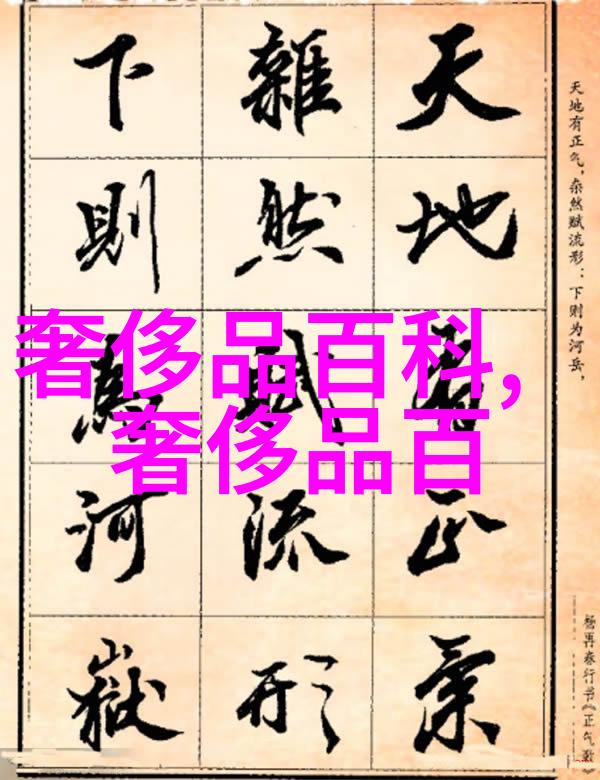 天地有正气，杂然赋流形：下则为河岳，
杨再春行书《正气歌》
天地有正氣
雜然賦流形
下則為河嶽
奢侈品百科,
奢侈品百